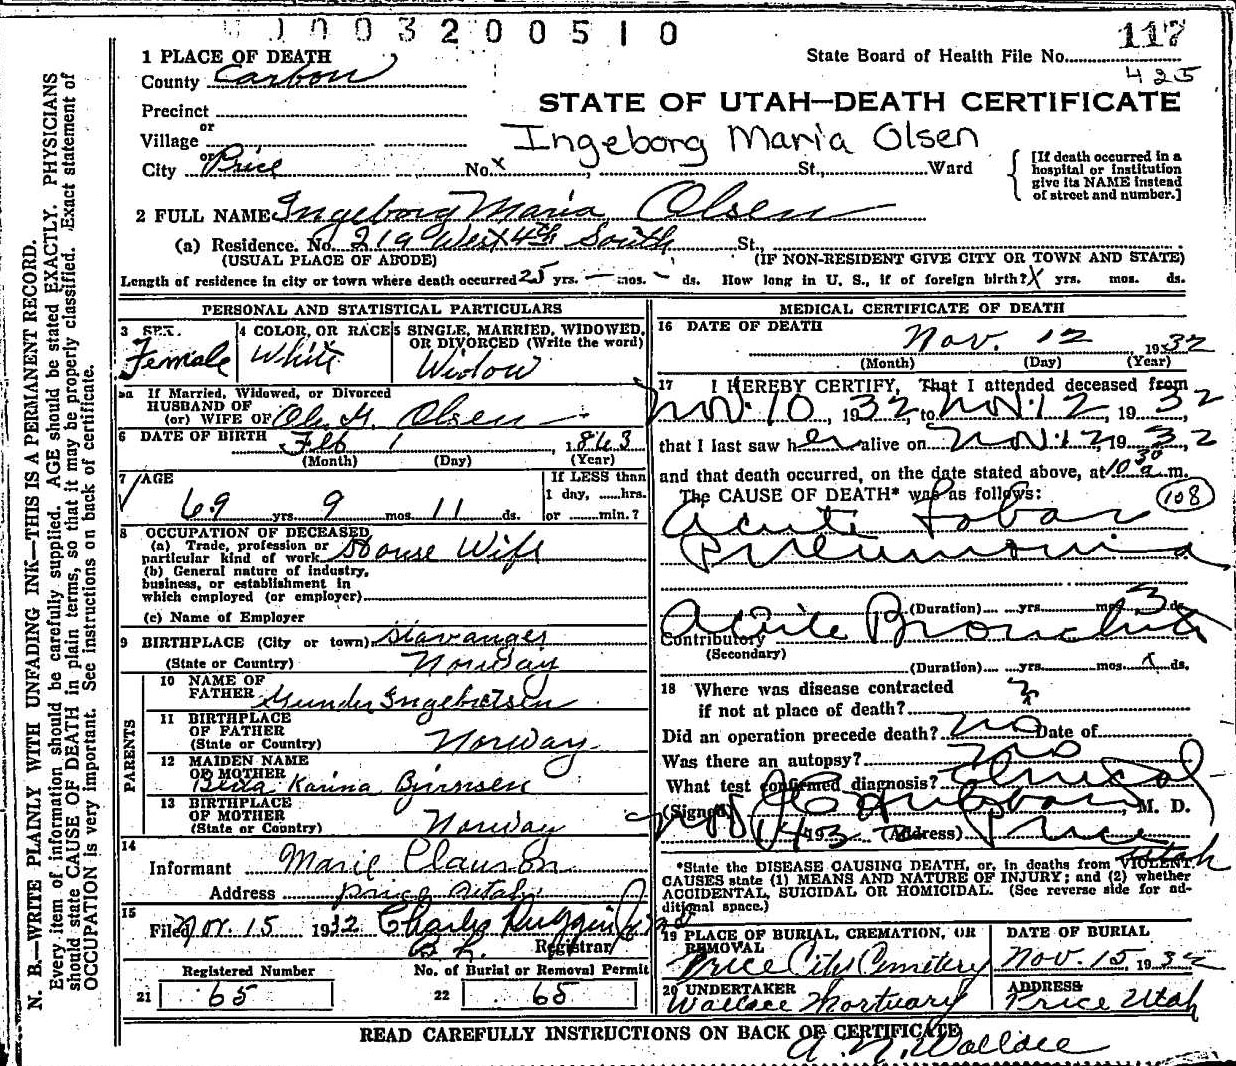 1003200510
117
State Board of Health File No.
425
1 PLACE OF DEATH
County Carbon
STATE OF UTAH—DEATH CERTIFICATE
Precinct
or
Village
Ingeborg Maria Olsen
or
City Price No. x St., Ward
[If death occurred in a hospital or institution give its NAME instead of street and number.]
2 FULL NAME Ingeborg Maria Olsen
(a) Residence. No. 219 West 4th South St.,
(USUAL PLACE OF ABODE) (IF NON-RESIDENT GIVE CITY OR TOWN AND STATE)
Length of residence in city or town where death occurred 25 yrs. — mos. - ds. How long in U. S., if of foreign birth? X yrs. mos. ds.
PERSONAL AND STATISTICAL PARTICULARS
3 SEX.
Female
4 COLOR, OR RACE
White
5 SINGLE, MARRIED, WIDOWED, OR DIVORCED (Write the word)
Widow
5a If Married, Widowed, or Divorced
HUSBAND OF
(or) WIFE OF Ole H. Olsen
6 DATE OF BIRTH Feb 1, 1863
(Month) (Day) (Year)
7 AGE
69 yrs 9 mos 11 ds.
If LESS than
1 day, ......hrs.
or .......min.?
8 OCCUPATION OF DECEASED
(a) Trade, profession or
particular kind of work House Wife
(b) General nature of industry,
business, or establishment in
which employed (or employer)
(c) Name of Employer
9 BIRTHPLACE (City or town) Stavanger
(State or Country) Norway
PARENTS
10 NAME OF
FATHER Gunder Ingebretsen
11 BIRTHPLACE
OF FATHER
(State or Country) Norway
12 MAIDEN NAME
OF MOTHER
Karina
13 BIRTHPLACE
OF MOTHER
(State or Country) Norway
14
Informant Marie Clawson
Address Price Utah
15
Filed Nov. 15 1932 Charles Ruggeri Jr
Registrar
Registered Number
21 65
No. of Burial or Removal Permit
22 65
MEDICAL CERTIFICATE OF DEATH
16 DATE OF DEATH
Nov. 12 1932
(Month) (Day) (Year)
17 I HEREBY CERTIFY, That I attended deceased from
Nov. 10, 1932 to Nov. 12, 1932,
that I last saw her alive on Nov. 12, 1932,
and that death occurred, on the date stated above, at 10 30 a m.
The CAUSE OF DEATH* was as follows:
108
Acute Lobar
Pneumonia
(Duration) yrs. mos. 3 ds.
Acute Bronchitis
Contributory
(Secondary)
(Duration) yrs. mos. ds.
18 Where was disease contracted
if not at place of death?
Did an operation precede death? No Date of
Was there an autopsy? No
What test confirmed diagnosis? Clinical
(Signed) Hubbard, M. D.
Nov 14 1932 (Address) Price
Utah
*State the DISEASE CAUSING DEATH, or, in deaths from VIOLENT
CAUSES state (1) MEANS AND NATURE OF INJURY; and (2) whether
ACCIDENTAL, SUICIDAL OR HOMICIDAL. (See reverse side for additional space.)
19 PLACE OF BURIAL, CREMATION, OR
REMOVAL
Price City Cemetery
DATE OF BURIAL
Nov. 15, 1932
20 UNDERTAKER
Wallace Mortuary
ADDRESS
Price Utah
READ CAREFULLY INSTRUCTIONS ON BACK OF CERTIFICATE
Wallace
N. B.—WRITE PLAINLY WITH UNFADING INK—THIS IS A PERMANENT RECORD.
Every item of information should be carefully supplied. AGE should be stated EXACTLY. PHYSICIANS
should state CAUSE OF DEATH in plain terms, so that it may be properly classified. Exact statement of
OCCUPATION is very important. See instructions on back of certificate.